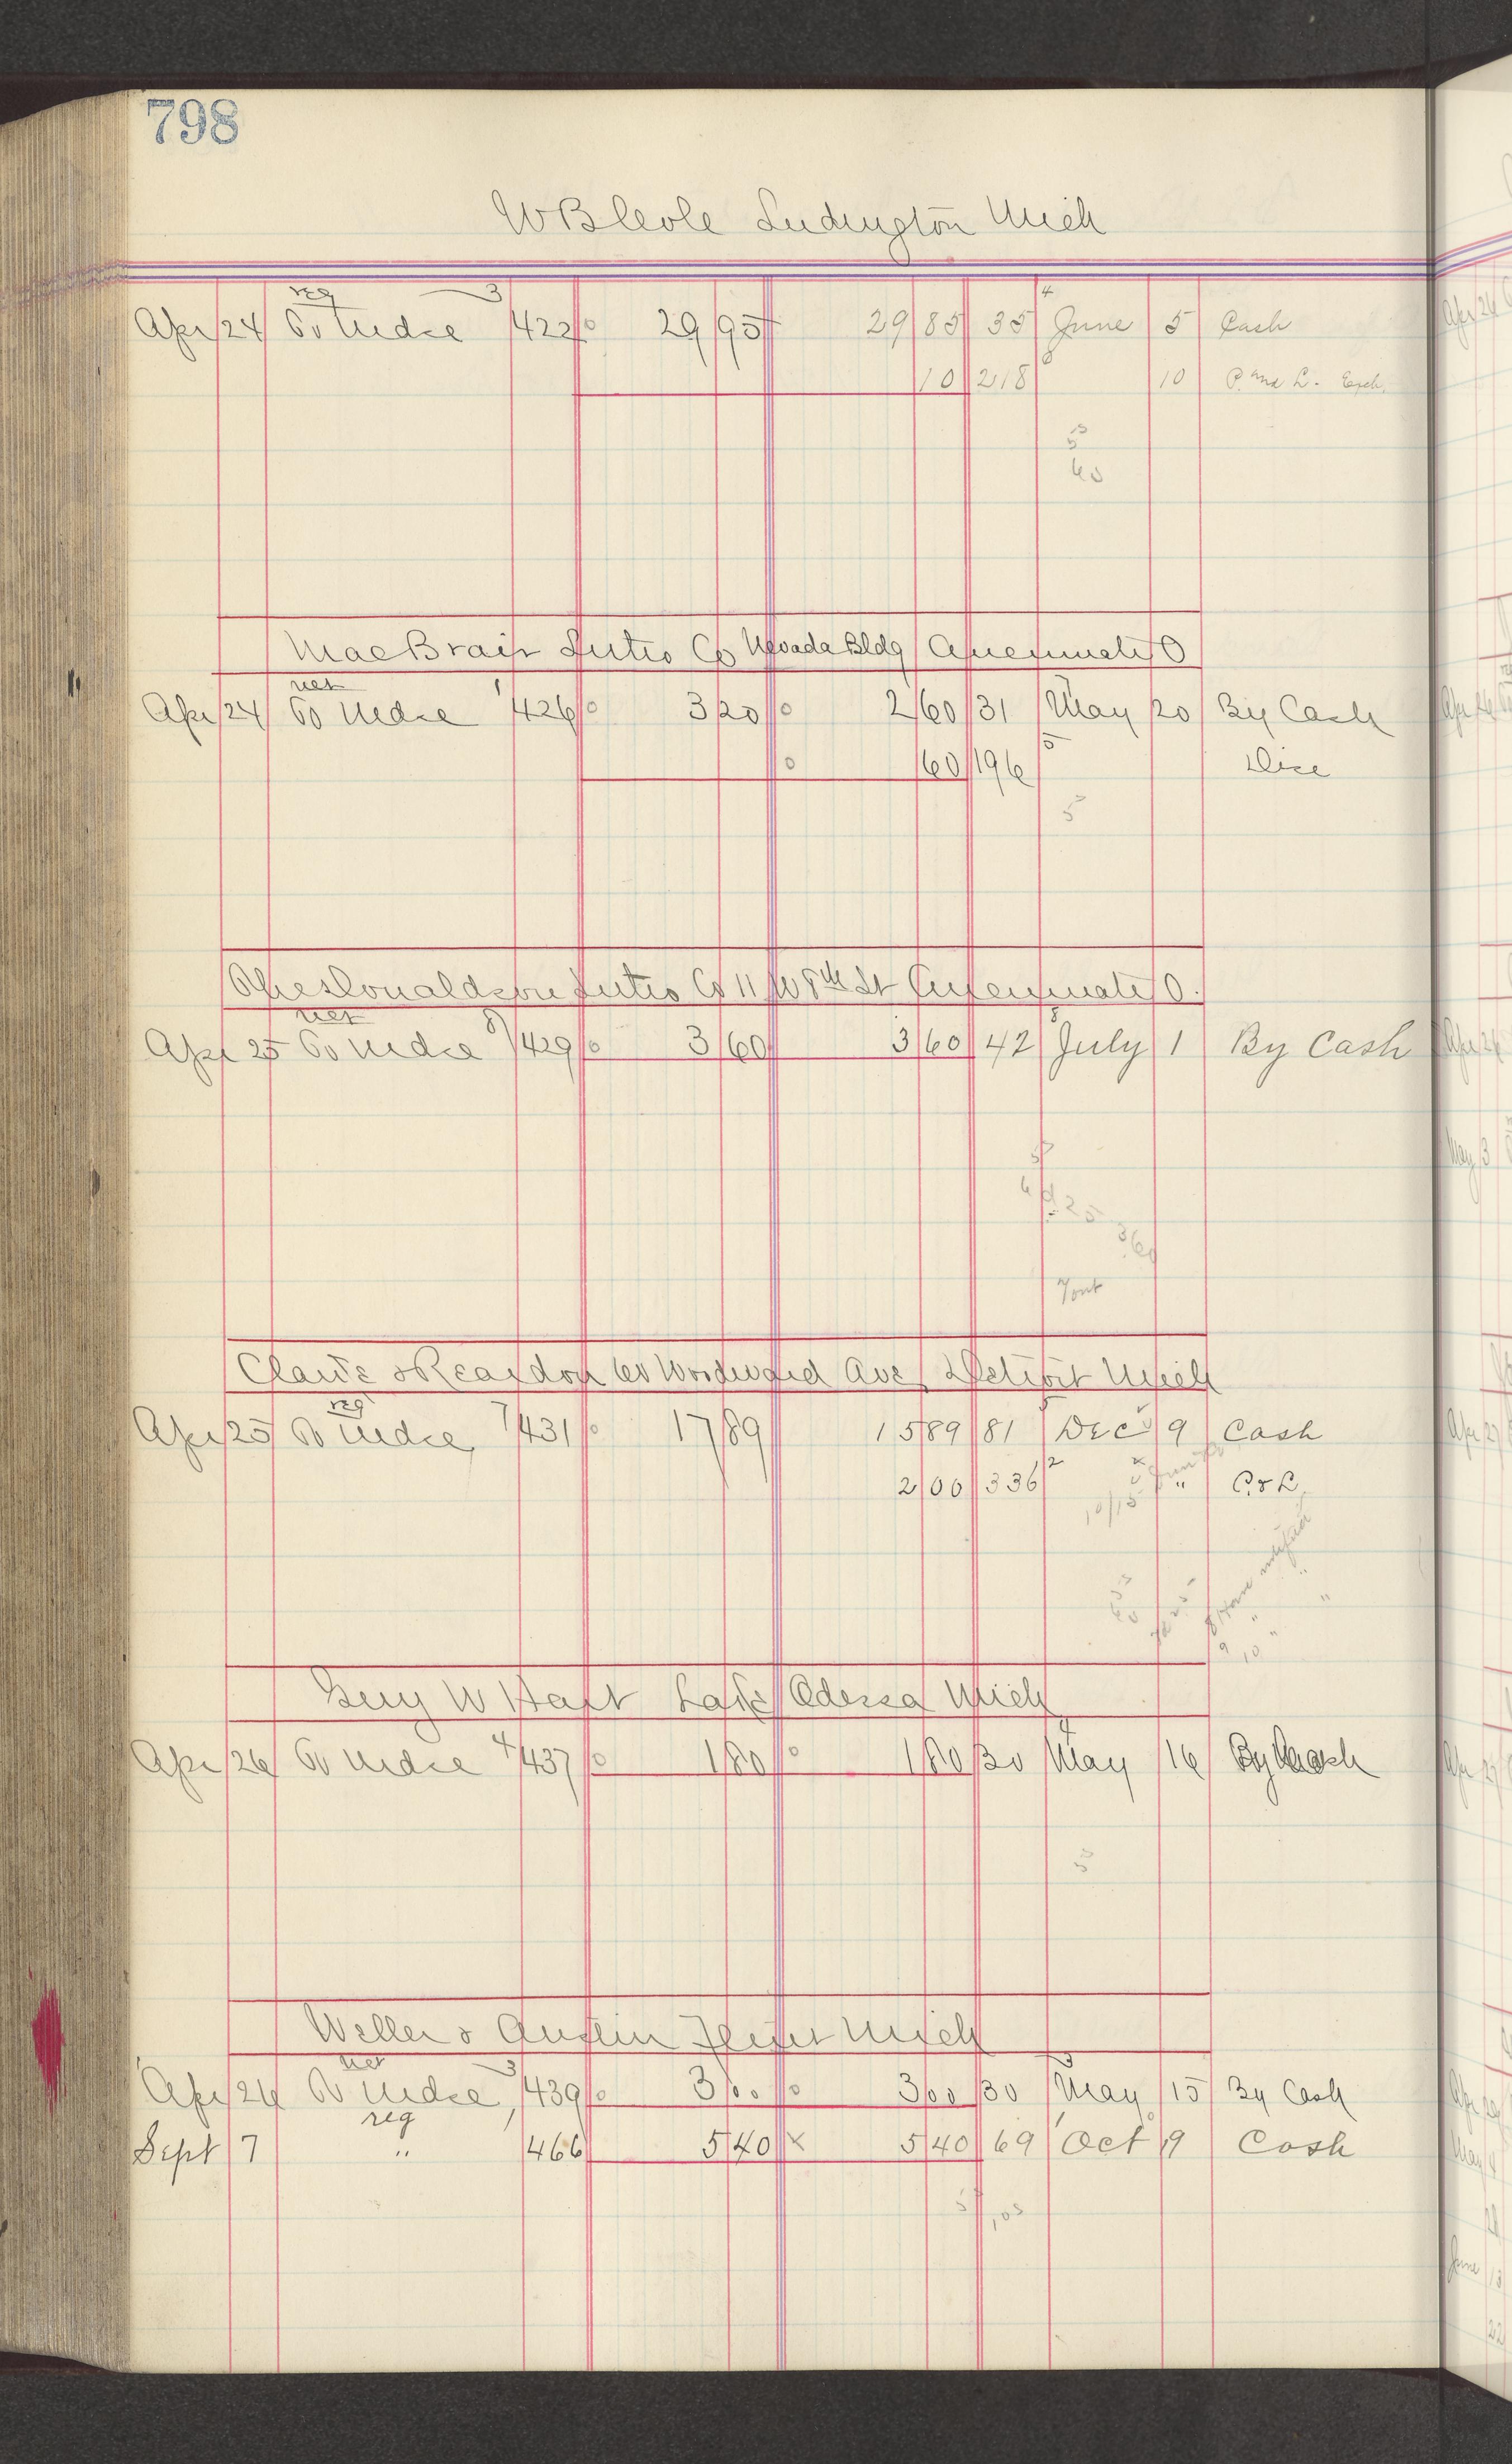 798
W B Cole Ludington Mich
reg 3 4
Apr 24 To Mdse 422 29 95 29 85 35 June 5 Cash
10 218 6 10 P. and L. Exch.
5
60
MacBrair Litho Co Nevada Bldg Cincinnati O
net 1
Apr 24 To Mdse 426 3 20 2 60 31 May 20 By Cash
60 196 5 Disc
5
Ches Donaldson Litho Co 11 W 8th St Cincinnati O.
net 8
Apr 25 To Mdse 429 3 60 3 60 42 July 1 By Cash
25
3 60
Clark & Reardon 60 Woodward Ave Detroit Mich
reg 7
Apr 25 To Mdse 431 17 89 15 89 81 Dec 9 Cash
2 00 336 2 " P & L
10/15
notified
9 10 "
Guy W Hart Lake Odessa Mich
4
Apr 26 To Mdse 437 1 80 1 80 30 May 16 By Cash
5
Weller & Austin Flint Mich
net 3
Apr 26 To Mdse 439 3 00 3 00 30 May 15 By Cash
reg
Sept 7 " 466 5 40 x 5 40 69 Oct 9 Cash